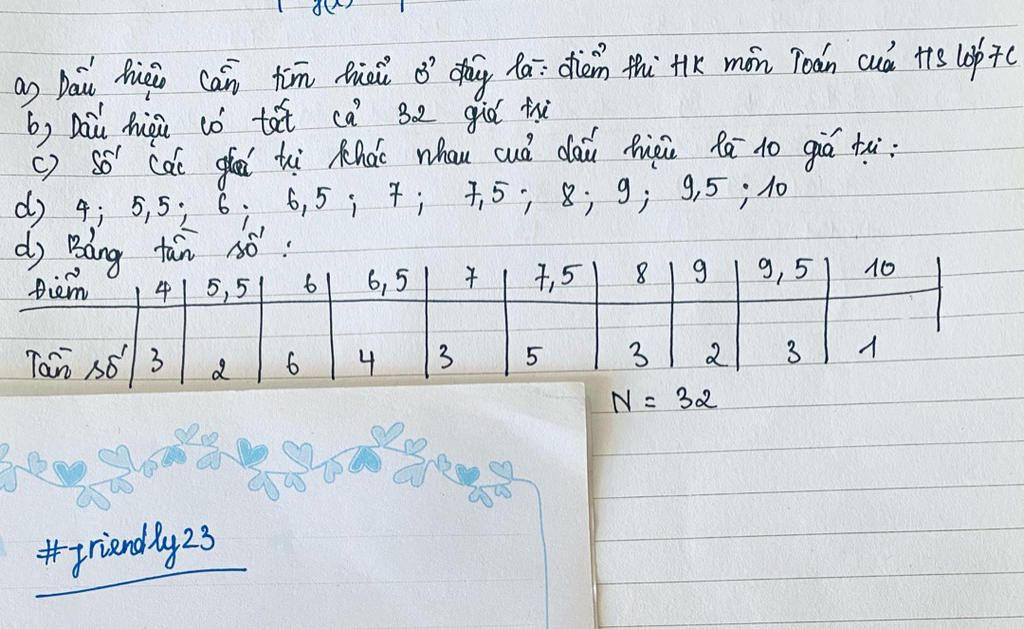 a) Dấu hiệu cần tìm hiểu ở đây là: điểm thi HK môn Toán của HS lớp 7C
b) Dấu hiệu có tất cả 32 giá trị
c) Số các giá trị khác nhau của dấu hiệu là 10 giá trị:
d) 4; 5,5; 6; 6,5; 7; 7,5; 8; 9; 9,5; 10
d) Bảng tần số:
Điểm 4 5,5 6 6,5 7 7,5 8 9 9,5 10
Tần số 3 2 6 4 3 5 3 2 3 1
N = 32
#friendly23